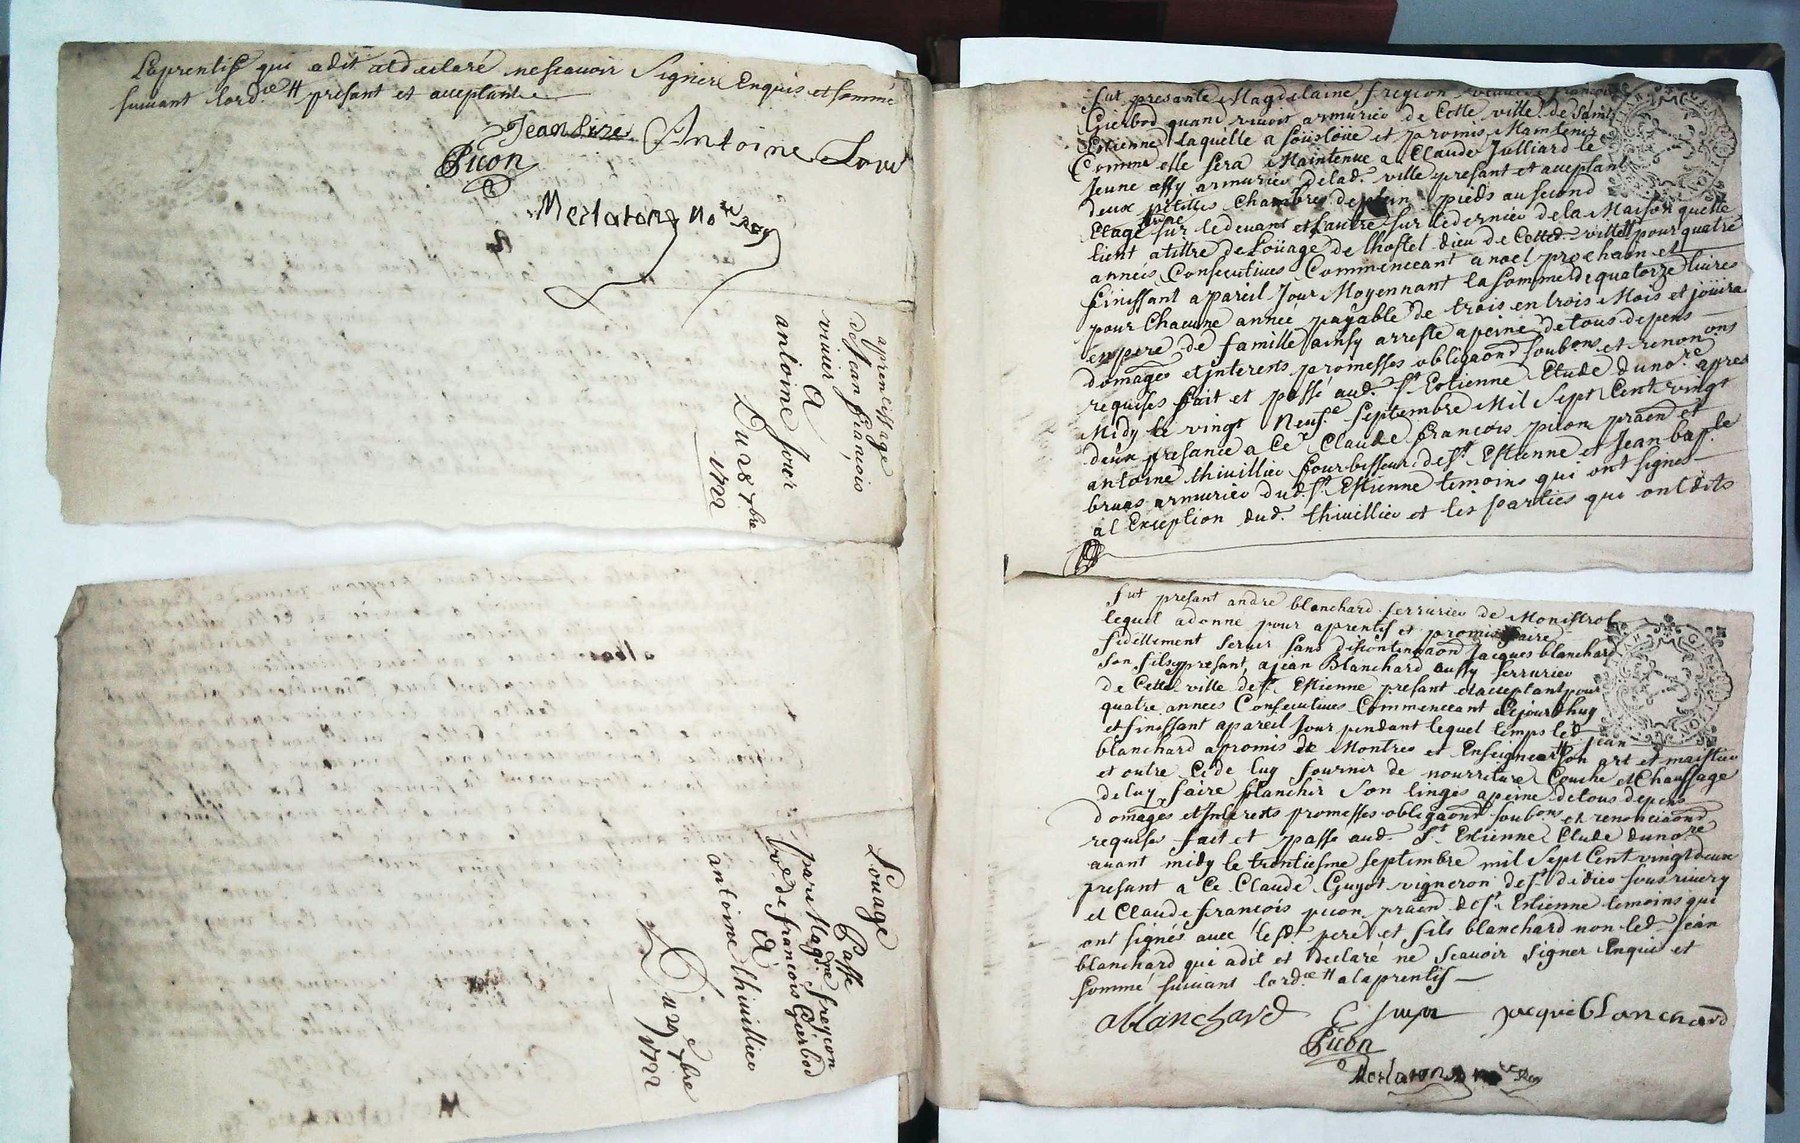 Laprentif qui adit et declaré nescauoir Signer Enquis et sommé
suiuant lord.ce H present et acceptant
Jean Antoine Jour
Picon
Merlaton no.re Roy
aprentissage
de Jean francois
viuier
A
antoine Jour
Du 28 7bre
1722
Louage
Passé
par Magd.ne freycon
v.e de francois Gierbod
A
antoine thiuillier
Du 29e 7bre
1722
fut presante Magdelaine freycon veuue francois
Gierbod quand viuoit armurier de Cette ville de Saint
Estienne laquelle a sousloüé et promis Maintenir
Comme elle sera Maintenue a Claude Julliard le
Jeune aussy armurier delad. ville present et acceptant
deux petittes Chambres de plein pieds au second
Etage l'une sur le deuant et l'autre sur le dernier de la Maison quelle
tient a tittre de Loüage de lhostel dieu de Cetted. ville H pour quatre
années Consecutiues Commenceant a noel prochain et
finissant a pareil Jour Moyennant la somme de quatorze liures
pour Chacune année payable de trois en trois Mois et joüira
en pere de famille ainsy arresté a peine de tous depens
domages et interests promesses obligaons soubons et renonons
requises fait et passé aud. St Estienne Etude du no.re apres
Midy le vingt Neuf.e Septembre Mil Sept Cent vingt
deux presance a Ce Claude francois picon praen et
antoine thiuillier fourbisseur de St Estienne et Jean bap.te
bruas armurier dud. St Estienne temoins qui ont signés
a l Exception dud. thiuillier et les parties qui ont dits
fut present andre blanchard serrurier de Monistrol
lequel a donné pour aprentif et promis faire
fidellement seruir sans discontinuaon Jacques blanchard
son fils present a jean Blanchard aussy serrurier
de Cette ville de St Estienne present et acceptant pour
quatre années Consecutiues Commenceant Cejourdhuy
et finissant a pareil Jour pendant lequel temps led
Jean
blanchard a promis de Montrer et Enseigner H son art et maistier
et outre Ce de luy fournir de nourriture Couche et Chauffage
de luy faire blanchir son linges a peine de tous depens
domages et Interests promesses obligaons soubons et renonciaons
requises fait et passé aud. St Estienne Etude du no.re
auant midy le trentiesme septembre mil Sept Cent vingt deux
present a Ce Claude Guyot vigneron de St didier sous riuery
et Claude francois picon praen de St Estienne temoins qui
ont signés auec lesd. pere et fils blanchard non led. Jean
blanchard qui a dit et declaré ne Scauoir Signer Enquis et
sommé suiuant lord.ce H a laprentif
ablanchard C Guyot jacque blanchard
Picon
Merlaton no.re Roy